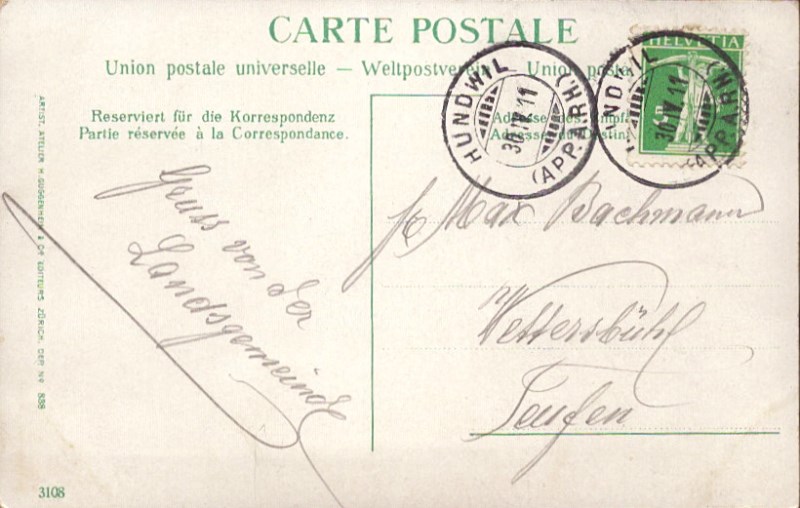 CARTE POSTALE
Union postale universelle — Weltpostverein Union posta
HELVETIA
HUNDWIL
30.IV.11
(APP.A.RH.)
NDWIL
30.IV.11
(APP.A.RH.)
Reserviert für die Korrespondenz
Partie réservée à la Correspondance.
Adresse des Empf
Adresse du Destin
Gruss von der
Landsgemeinde
Max Bachmann
Wettersbühl
Teufen
ARTIST. ATELIER H. GUGGENHEIM & Co EDITEURS, ZÜRICH. DEP. No 838
3108